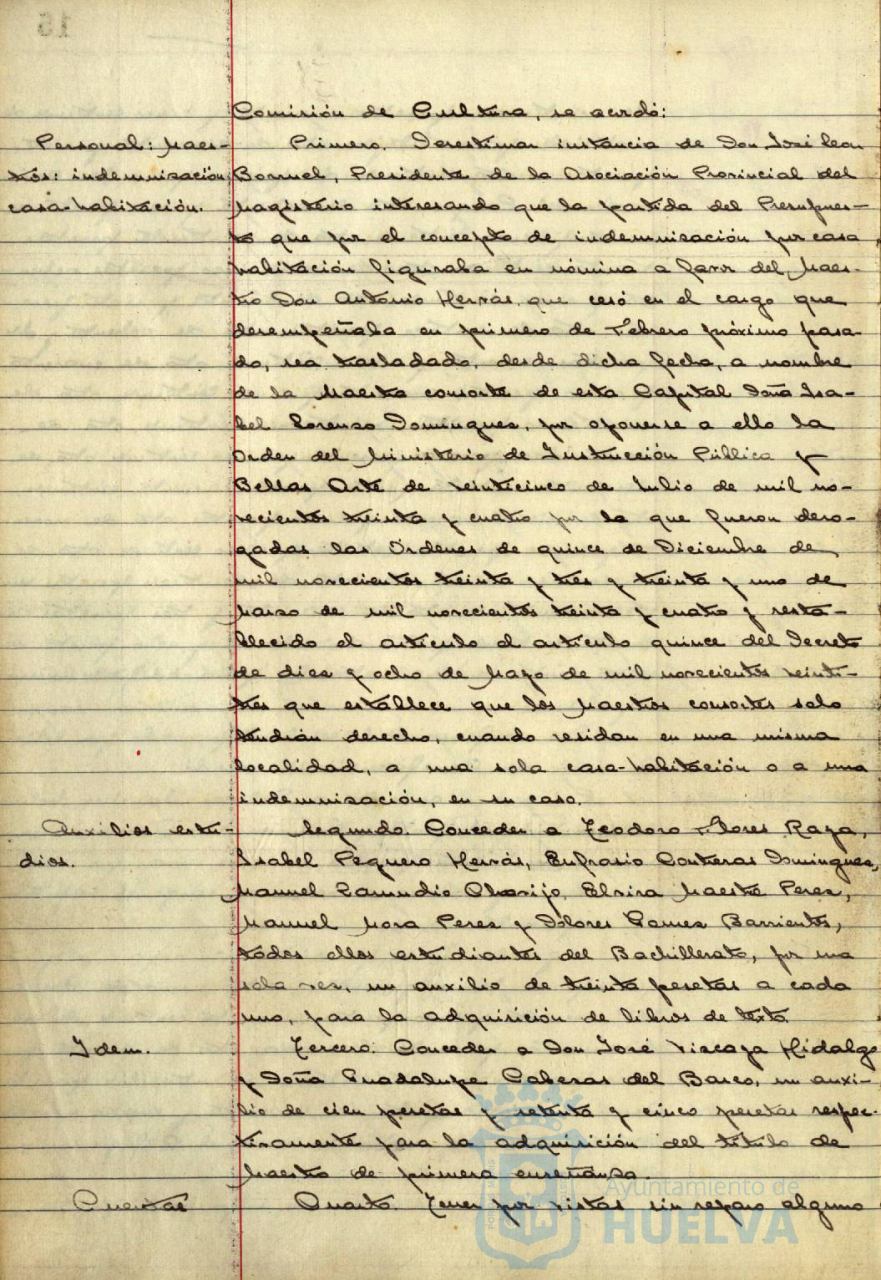 15
Comisión de Cultura, se acordó:
Personal: Maes-
tros: indemnización
casa-habitación.
Primero. Desestimar instancia de Don José Leon
Borruel, Presidente de la Asociación Provincial del
Magisterio interesando que la partida del Presupues-
to que por el concepto de indemnización por casa
habitación figuraba en nómina a favor del Maes-
tro Don Antonio Hervás, que cesó en el cargo que
desempeñaba en primero de Febrero próximo pasa-
do, sea trasladado, desde dicha fecha, a nombre
de la Maestra consorte de esta Capital Doña Isa-
bel Lorenzo Dominguez, por oponerse a ello la
Orden del Ministerio de Instrucción Pública y
Bellas Arte de veinticinco de Julio de mil no-
vecientos treinta y cuatro por la que fueron dero-
gadas las Órdenes de quince de Diciembre de
mil novecientos treinta y tres y treinta y uno de
Marzo de mil novecientos treinta y cuatro y resta-
blecido el artículo el artículo quince del Decreto
de diez y ocho de Mayo de mil novecientos veinti-
tres que establece que los Maestros consortes solo
tendrán derecho, cuando residan en una misma
localidad, a una sola casa-habitación o a una
indemnización, en su caso.
Auxilios estu-
dios.
Segundo. Conceder a Teodoro Flores Raya,
Isabel Peguero Hervás, Eufrasio Contreras Dominguez,
Manuel Zamudio Elvira Maestre Perez,
Manuel Mora Perez y Dolores Gamez Barrientos,
todos ellos estudiantes del Bachillerato, por una
sola vez, un auxilio de treinta pesetas a cada
uno, para la adquisición de libros de texto.
Idem.
Tercero. Conceder a Don José Vizcaya Hidalgo
y Doña Guadalupe Caberas del Barco, un auxi-
lio de cien pesetas y setenta y cinco pesetas respec-
tivamente para la adquisición del título de
Maestro de primera enseñanza.
Cuentas
Cuarto. Tener por vistas sin reparo alguno
Ayuntamiento de
HUELVA